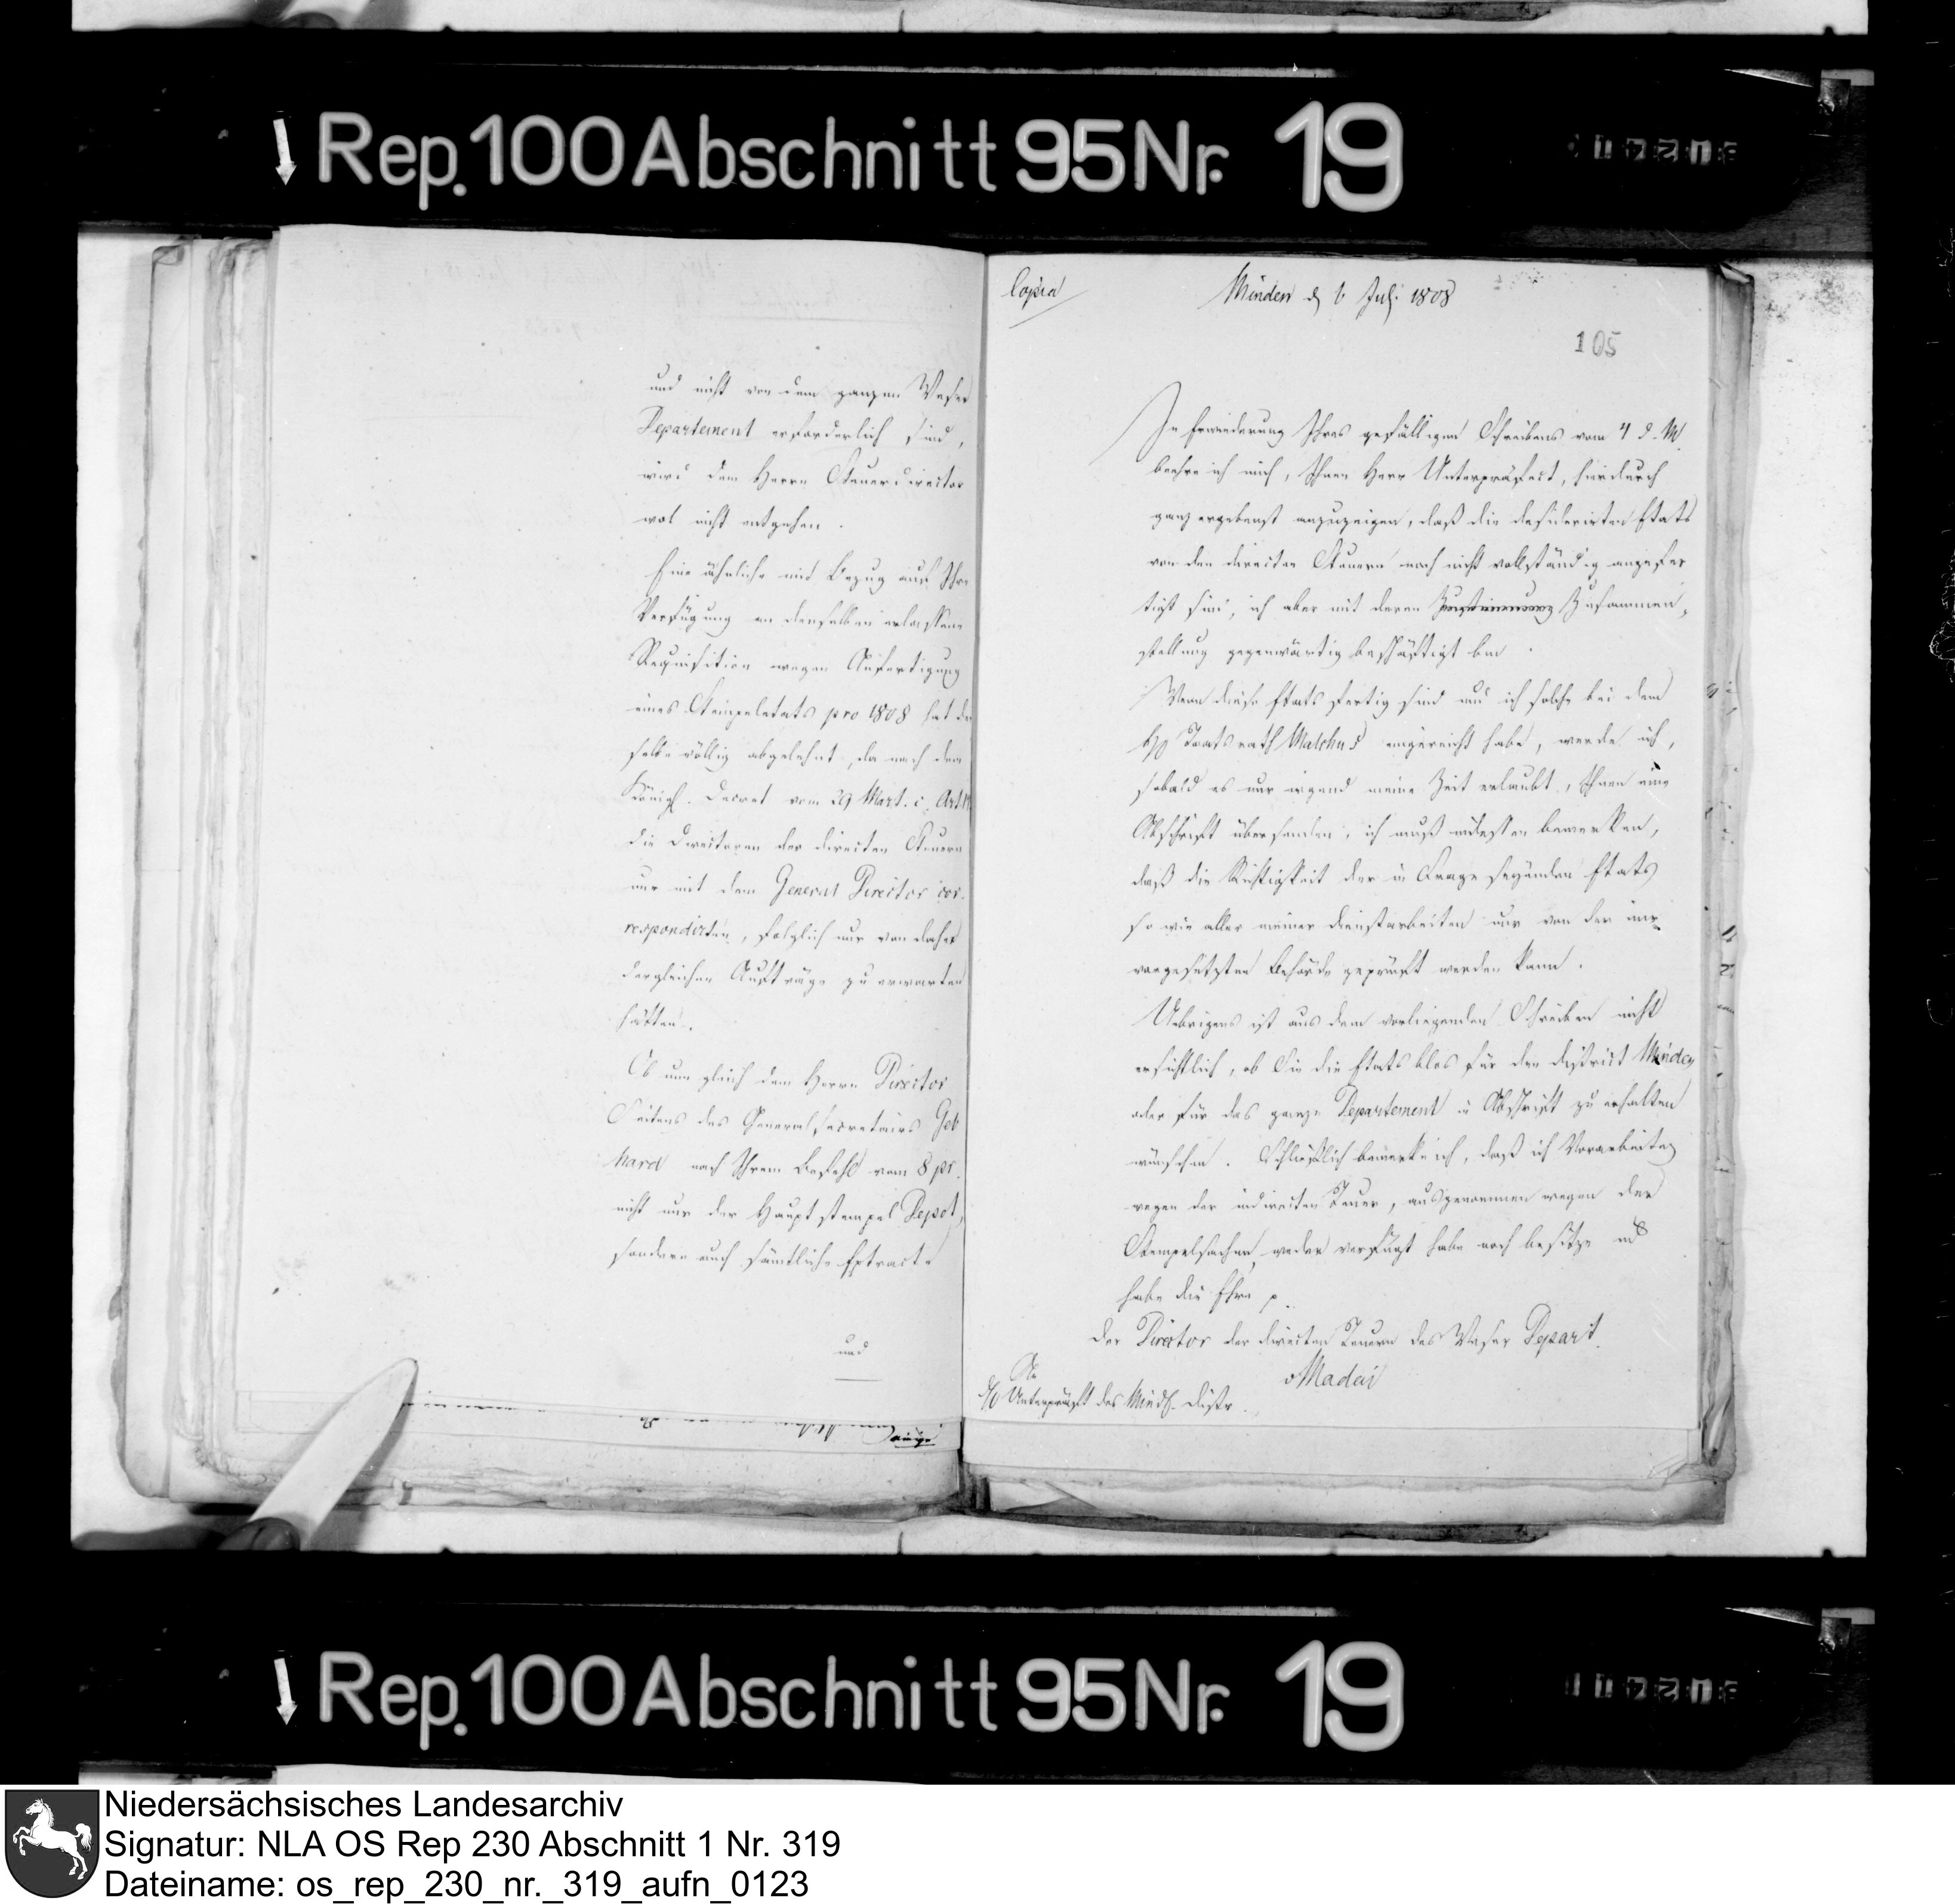 Rep. 100 Abschnitt 95 Nr. 19
und nicht von dem ganzen Weser
Departement erforderlich sind,
wird dem Herrn Steuerdirector
wol nicht entgehen.
Eine ähnliche mit Bezug auf Ihre
Verfügung an denselben erlassene
Requisition wegen Anfertigung
eines Stempeletats pro 1808 hat der
selbe völlig abgelehnt, da nach dem
Königl. Decret vom 29 Mart. c. Art.
die Directoren der directen Steuern
nur mit dem General Director cor-
respondirten, folglich nur von daher
dergleichen Aufträge zu erwarten
hätten.
Ob nun gleich dem Herrn Director
Seitens des Generalsecretairs Geb
hard nach Ihrem Befehl vom 8 pr.
nicht nur der Hauptstempel Depot,
sondern auch sämtliche Extracte
und
Copia
Minden d 6 Jul. 1808
105
In Erwiederung Ihres gefälligen Schreibens vom 4 d. M
beehre ich mich, Ihnen Herr Unterpräfect, hierdurch
ganz ergebenst anzuzeigen, daß die desiderirten Etats
von den directen Steuern noch nicht vollständig angefer
tigt sind, ich aber mit deren Zusammen-
stellung gegenwärtig beschäftigt bin.
Wenn diese Etats fertig sind und ich solche bei dem
H. Staatsrath Malchus eingereicht habe, werde ich,
sobald es nur irgend meine Zeit erlaubt, Ihnen eine
Abschrift übersenden, ich muß indessen bemerken,
daß die Richtigkeit der in Frage seyenden Etats
so wie aller meiner Dienstarbeiten nur von der mir
vorgesetzten Behörde geprüft werden kann.
Uebrigens ist aus dem vorliegenden Schreiben nicht
ersichtlich, ob Sie die Etats blos für den District Minden
oder für das ganze Departement in Abschrift zu erhalten
wünschen. Schließlich bemerke ich, daß ich Vorarbeiten
wegen der indirecten Steuer, ausgenommen wegen der
Stempelsachen, weder verfügt habe noch besitze und
habe die Ehre p.
Der Director der directen Steuern des Weser Depart.
v Madai
An
H. Unterpräfect des Mind. Distr.
Rep. 100 Abschnitt 95 Nr. 19
Niedersächsisches Landesarchiv
Signatur: NLA OS Rep 230 Abschnitt 1 Nr. 319
Dateiname: os_rep_230_nr._319_aufn_0123